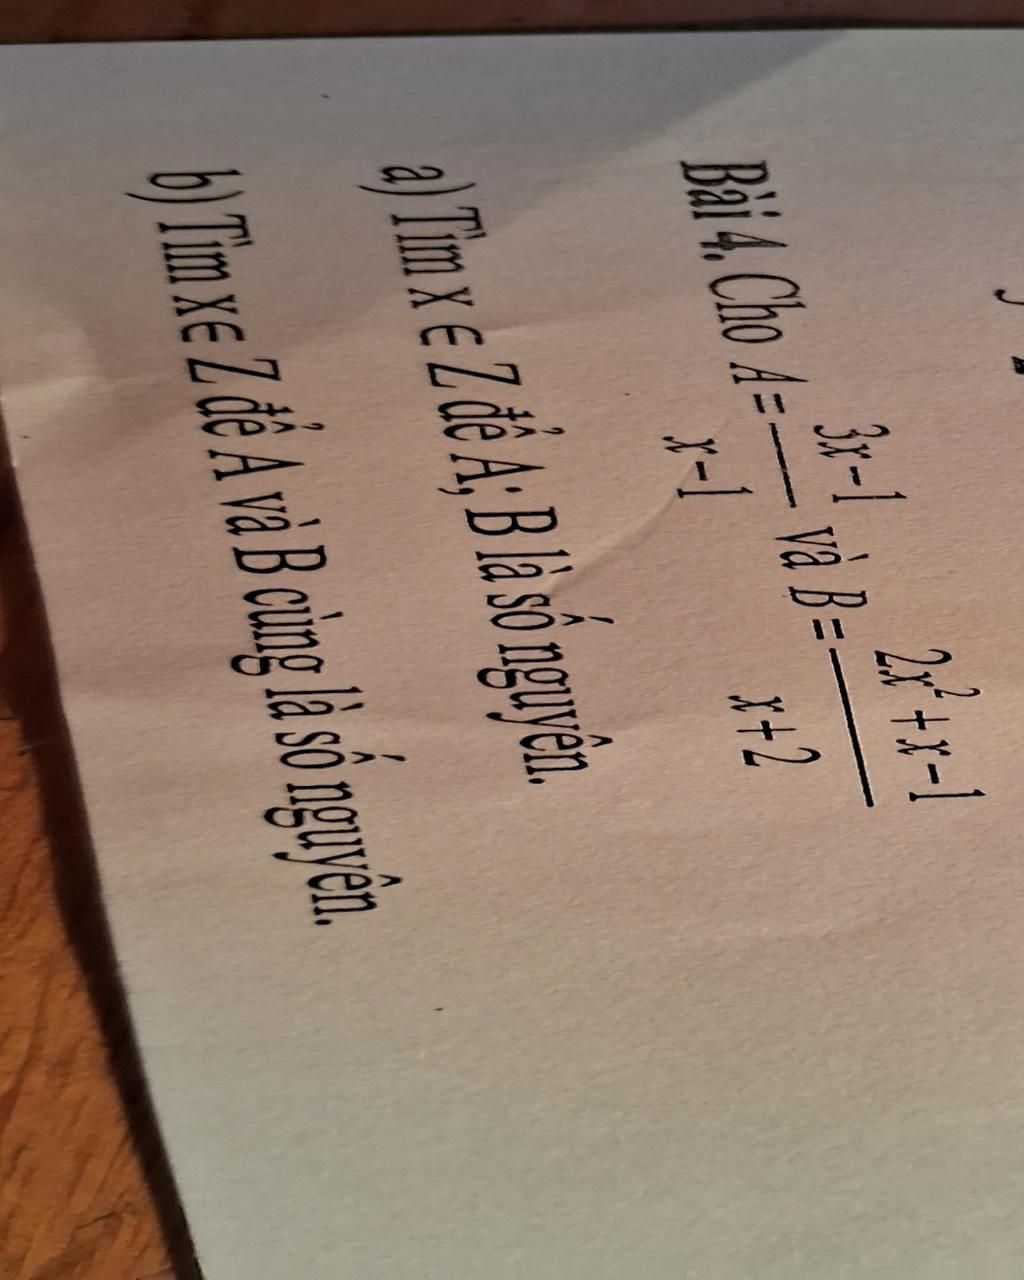 Bài 4. Cho A = \frac{3x-1}{x-1} và B = \frac{2x^2+x-1}{x+2}
a) Tìm x ∈ Z để A; B là số nguyên.
b) Tìm x∈ Z để A và B cùng là số nguyên.